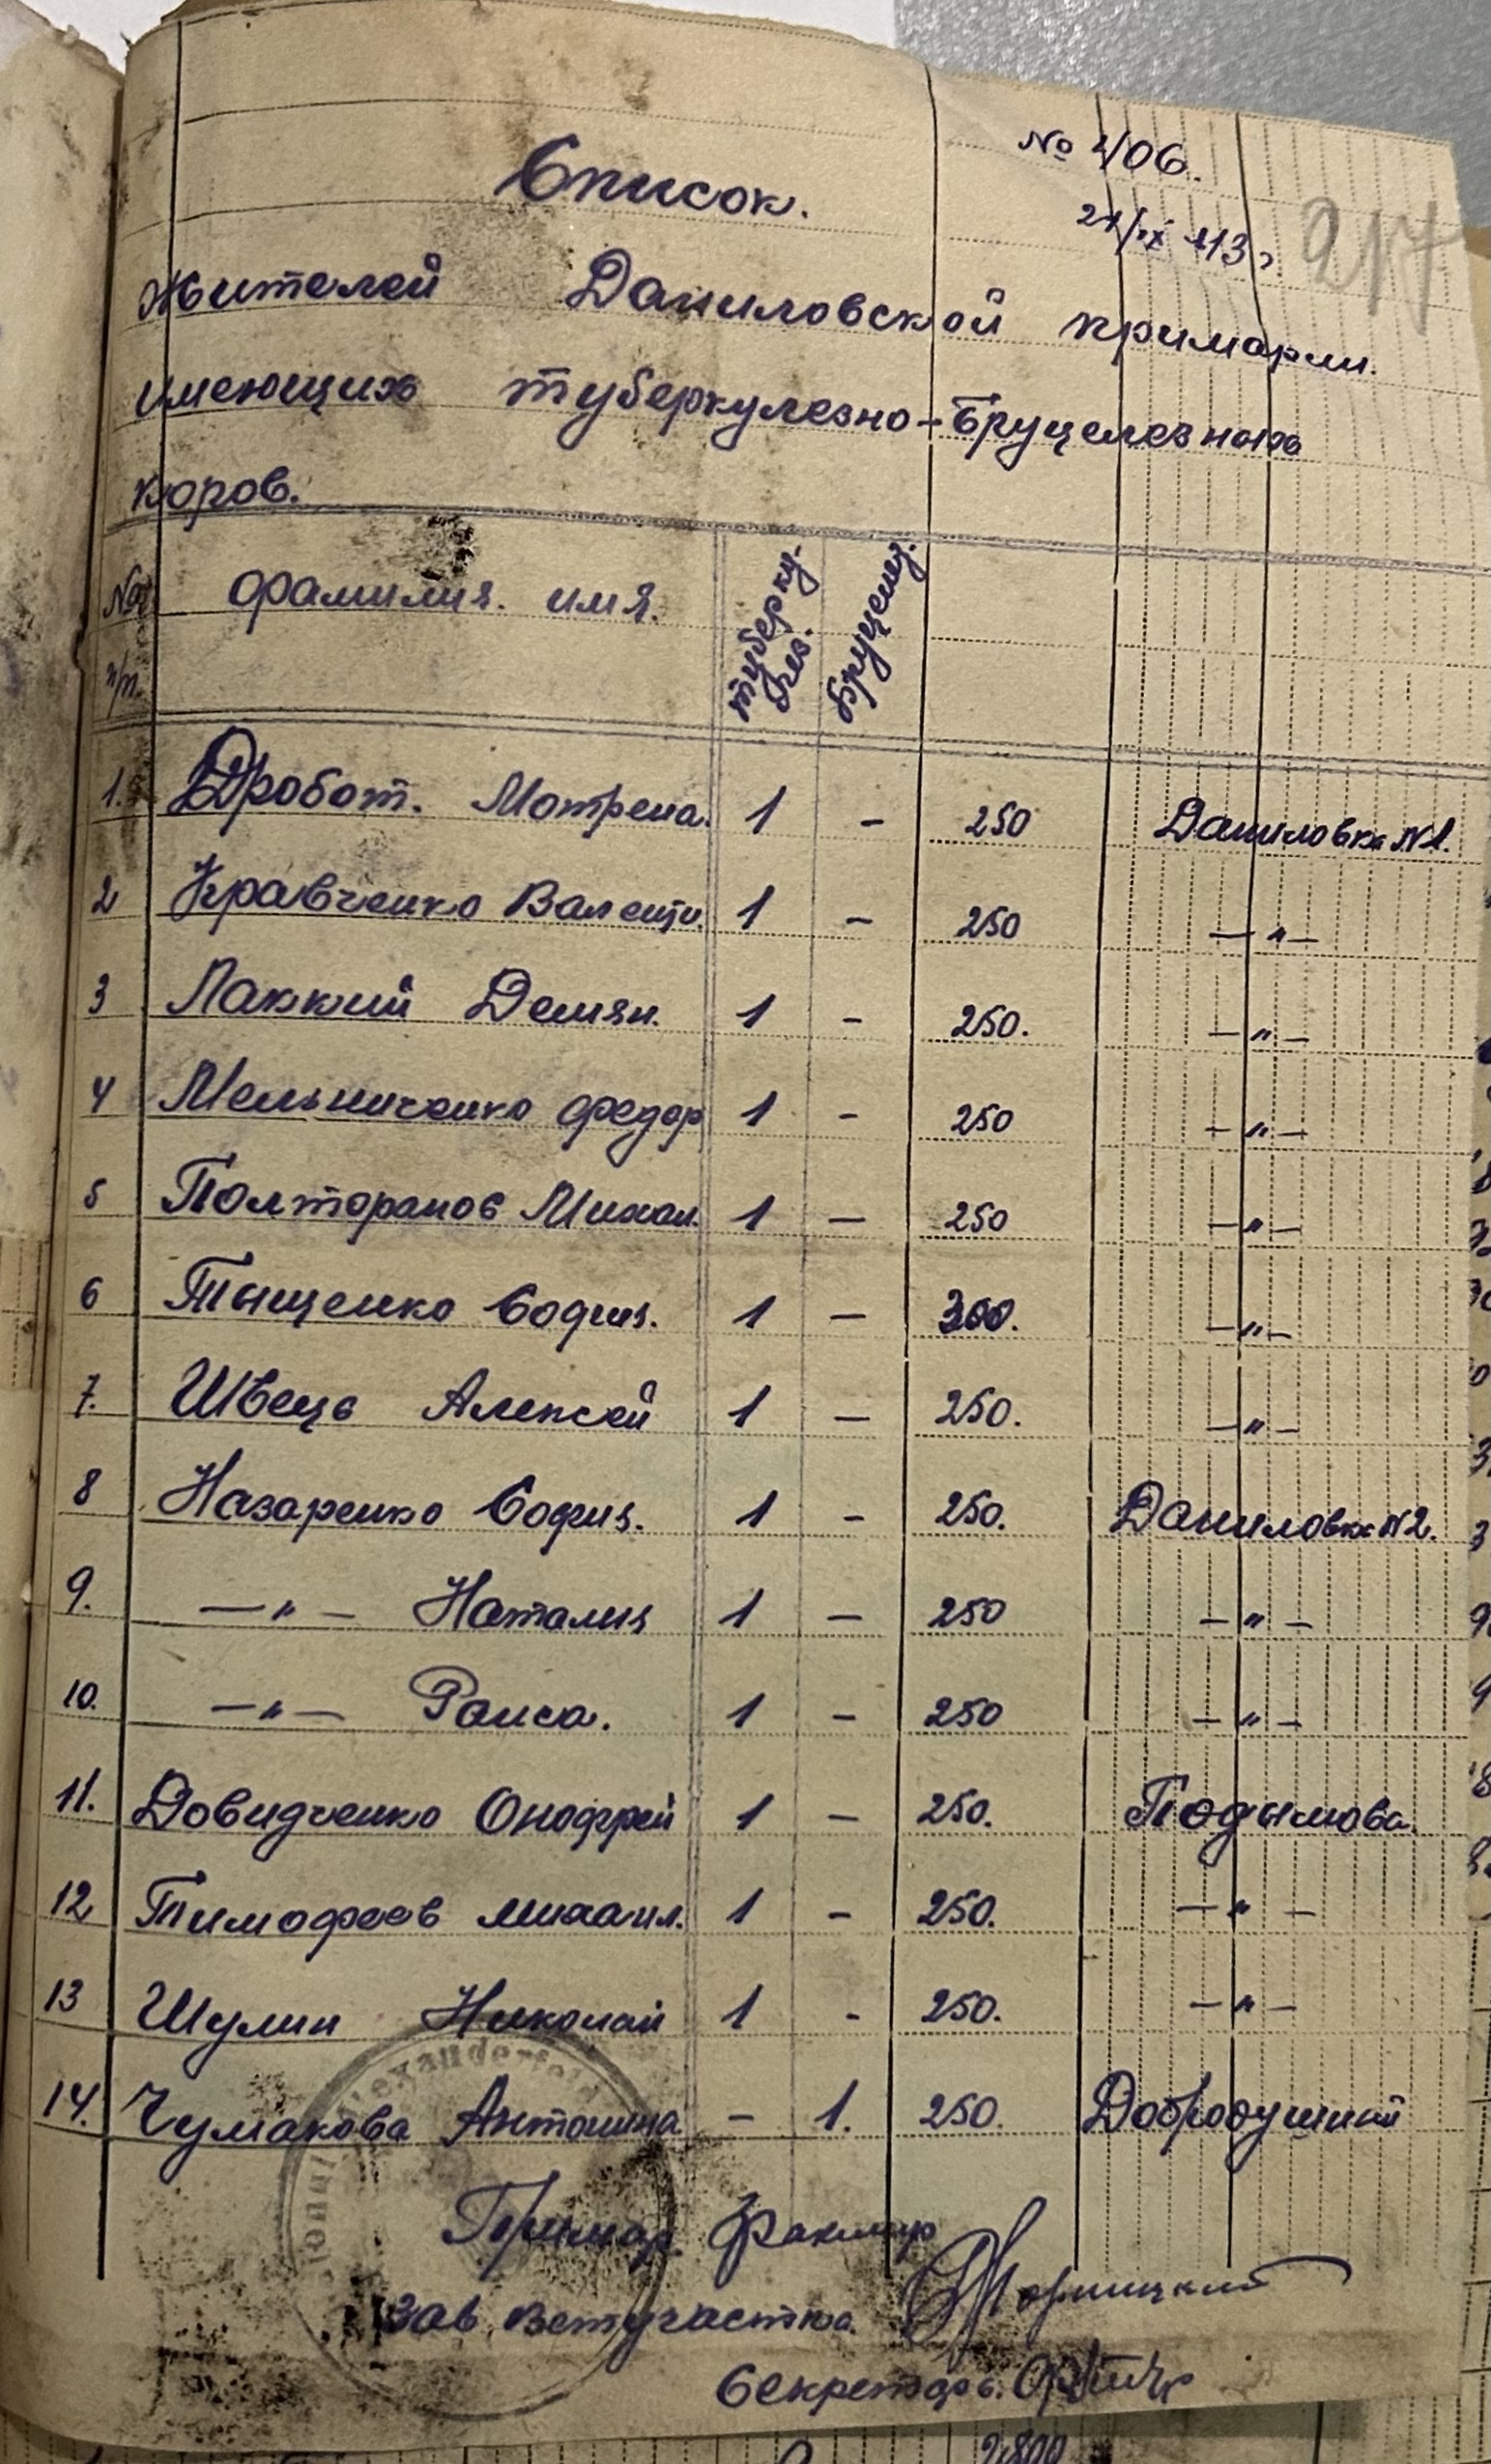 № 406.
21/IX 43 г
217
Список.
жителей Даниловской примарии.
имеющих туберкулезно-бруцелезных
коров.
№№ п/п. фамилия. имя. туберку-лез. бруцелез.
1. Дробот. Мотрена. 1 - 250 Даниловка №1.
2 Кравченко Валенти. 1 - 250 —„—
3 Лаккий Демян. 1 - 250. —„—
4 Мельниченко федор 1 - 250 —„—
5 Полторанов Михаил. 1 - 250 —„—
6 Тыщенко София. 1 - 300. —„—
7. Швець Алексей 1 - 250. —„—
8 Назаренко София. 1 - 250. Даниловка №2.
9. —„— Наталия 1 - 250 —„—
10. —„— Раиса. 1 - 250 —„—
11. Довидченко Онофрей 1 - 250. Подымова.
12 Тимофеев михаил. 1 - 250. —„—
13 Шулин Николай 1 - 250. —„—
14. Чумакова Антонина - 1. 250. Добродушный
Alexanderfeld
Примар.
Зав. Ветучастка.
Секретарь.
2.800